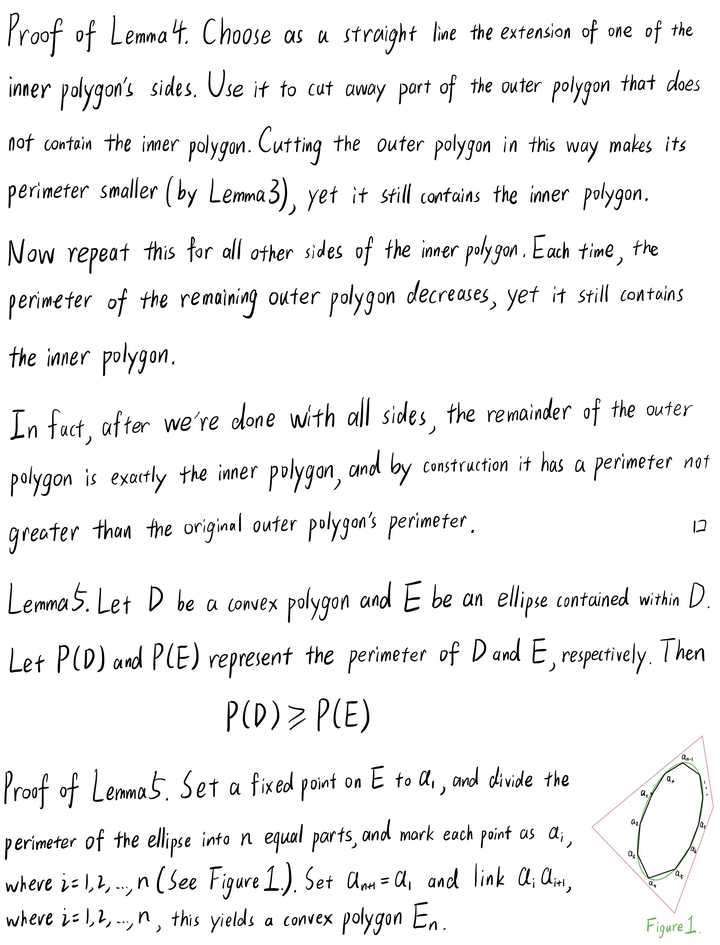 Proof of Lemma 4. Choose as a straight line the extension of one of the
inner polygon's sides. Use it to cut away part of the outer polygon that does
not contain the inner polygon. Cutting the outer polygon in this way makes its
perimeter smaller (by Lemma 3), yet it still contains the inner polygon.
Now repeat this for all other sides of the inner polygon. Each time, the
perimeter of the remaining outer polygon decreases, yet it still contains
the inner polygon.
In fact, after we're done with all sides, the remainder of the outer
polygon is exactly the inner polygon, and by construction it has a perimeter not
greater than the original outer polygon's perimeter. □
Lemma 5. Let D be a convex polygon and E be an ellipse contained within D.
Let P(D) and P(E) represent the perimeter of D and E, respectively. Then
P(D) ⩾ P(E)
Proof of Lemma 5. Set a fixed point on E to a₁, and divide the
perimeter of the ellipse into n equal parts, and mark each point as aᵢ,
where i=1,2,...,n (See Figure 1.). Set aₙ₊₁=a₁ and link aᵢaᵢ₊₁,
where i=1,2,...,n, this yields a convex polygon Eₙ.
Figure 1.